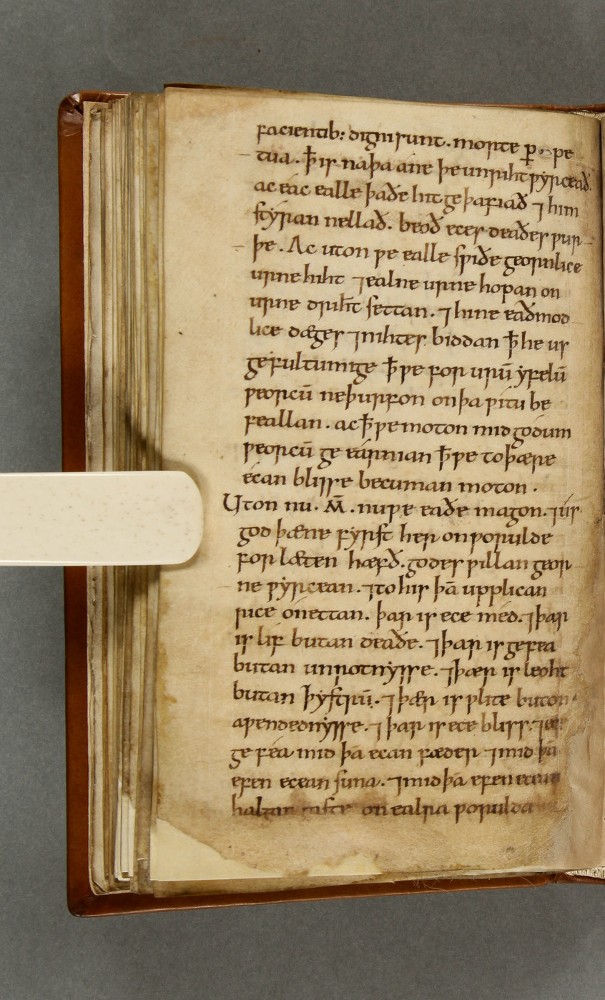 facientib: digni sunt. morte ꝑ. pe
tua. ꝥ is na þa ane þe unriht ƿyrceað.
ac eac ealle þaðe hit geþafiað ⁊ him
styran nellað. beoð eces deaðes ƿur
þe. Ac uton ƿe ealle sƿiðe geornlice
urne hiht ⁊ ealne urne hopan on
urne driht̄ settan. ⁊ hine eaðmod
lice dæges ⁊ nihtes biddan ꝥ he us
gefultumige ꝥ ƿe for urū yfelū
ƿeorcū ne þurfon on þa ƿitu be
feallan. ac ꝥ ƿe moton mid godum
ƿeorcū ge earnian ꝥ ƿe to þære
écan blisse becuman moton.
Uton nu. M̄. nu ƿe eaðe magon. ⁊ us
god þæne fyrst her on ƿorulde
for læten hæfð. godes ƿillan geor
ne ƿyrcean. ⁊ to his þā upplican
rice onettan. þar is ece méd. ⁊ þar
is lif butan deaðe. ⁊ þar is gefea
butan unrotnysse. ⁊ þær is leoht
butan þystrū. ⁊ þær is ƿlite buton
aƿendednysse. ⁊ þar is ece bliss.
ge féa mid þā ecan fæder ⁊ mid þā
efen ecean suna. ⁊ mid þā efen ecean
halgan gaste on ealra ƿorulda